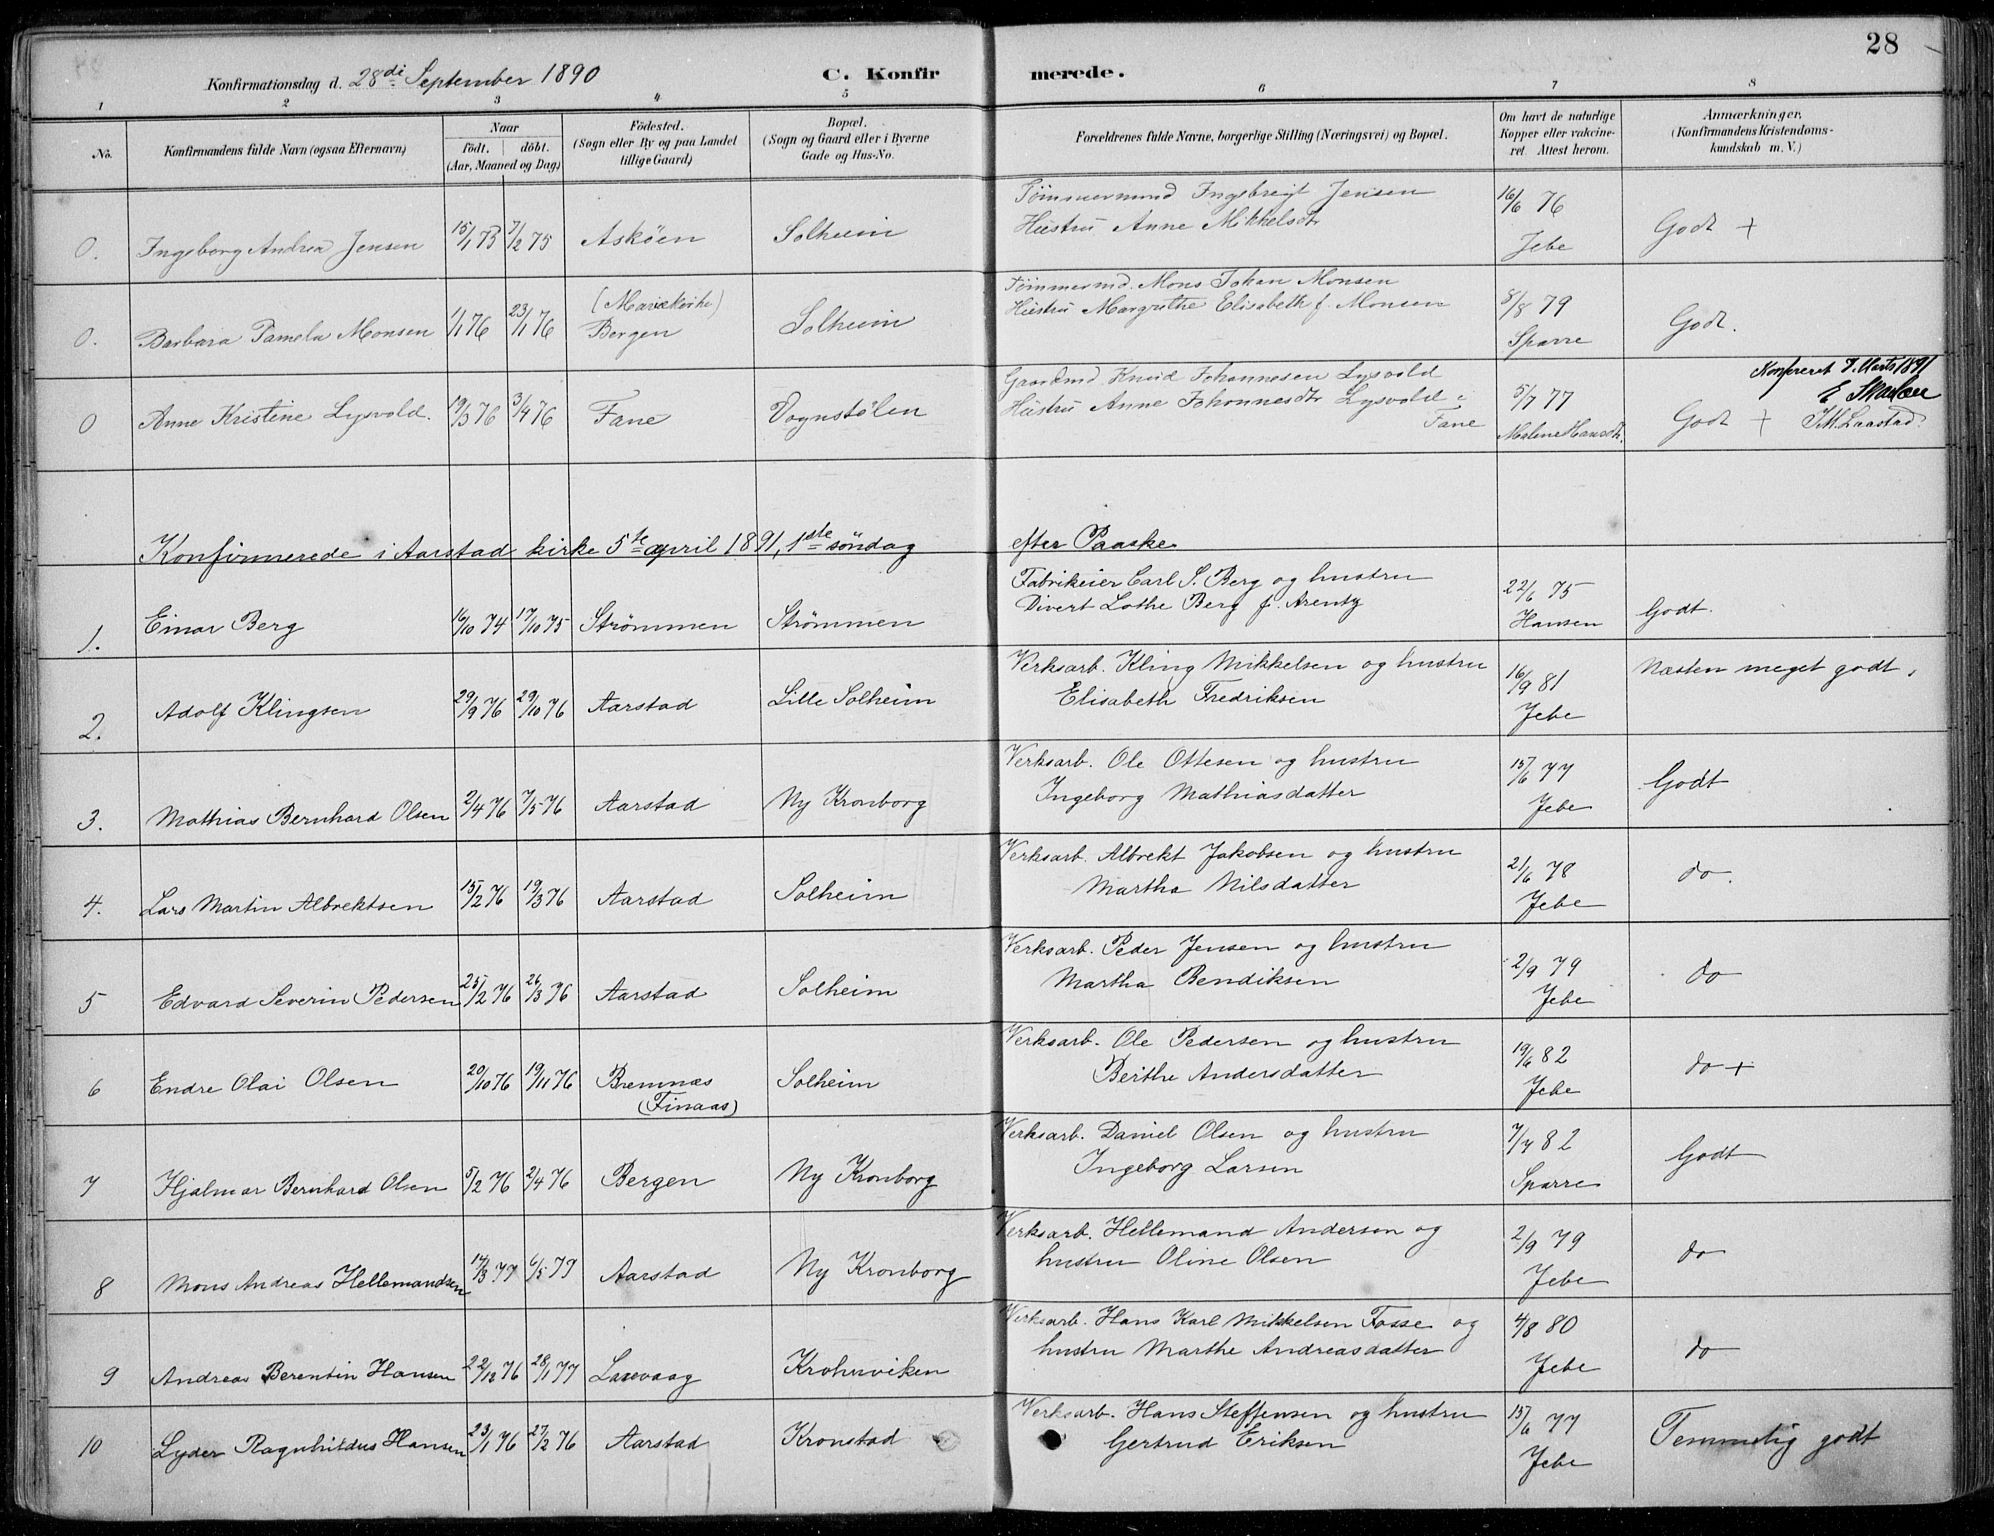 28
Konfirmationsdag d. 28de September 1890
C. Konfirmerede.
1 2 3 4 5 6 7 8
No. Konfirmandens fulde Navn (ogsaa Efternavn) Naar födt. döbt. (Aar, Maaned og Dag) Födested. (Sogn eller By og paa Landet tillige Gaard) Bopæl. (Sogn og Gaard eller i Byerne Gade og Hus-No. Forældrenes fulde Navne, borgerlige Stilling (Næringsvei) og Bopæl. Om havt de naturlige Kopper eller vakcineret. Attest herom. Anmærkninger, (Konfirmandens Kristendomskundskab m. V.)
Tömmermand Ingebrigt Jensen
0. Ingeborg Andrea Jensen 15/1 75 7/2 75 Asköen Solheim Hustru Anne Mikkelsdtr 16/6 76 Jebe Godt +
Tömmermd. Mons Johan Monsen
0. Barbara Pamela Monsen 1/1 76 23/1 76 (Mariækirke) Bergen Solheim Hustru Margrethe Elisabeth f. Monsen 5/8 79 Sparre Godt.
Gaardmd Knud Johannesen Lysvold
0 Anne Kristine Lysvold. 19/3 76 3/4 76 Fane Vognstölen Hustru Anne Johannesdtr Lysvold i Fane 5/7 77 Malene Hansdtr. Godt + Konfereret 7. Marts 1891
J.M. Laastad
Konfirmerede i Aarstad kirke 5te april 1891, 1ste söndag efter Paaske
Fabrikeier Carl S. Berg og hustru
1. Einar Berg 16/10 74 17/10 75 Strømmen Strømmen Divert Lothe Berg f. Arentz 22/6 75 Hansen Godt.
Verksarb. Kling Mikkelsen og hustru
2. Adolf Klingsen 29/9 76 29/10 76 Aarstad Lille Solheim Elisabeth Fredriksen 16/9 81 Jebe Næsten meget godt.
Verksarb. Ole Ottesen og hustru
3. Mathias Bernhard Olsen 2/4 76 7/5 76 Aarstad Ny Kronborg Ingeborg Mathiasdatter 15/6 77 Jebe Godt
Verksarb. Albrekt Jakobsen og hustru
4. Lars Martin Albrektsen 15/2 76 19/3 76 Aarstad Solheim Martha Nilsdatter 21/6 78 Jebe do.
Verksarb. Peder Jensen og hustru
5 Edvard Severin Pedersen 25/2 76 26/3 76 Aarstad Solheim Martha Bendiksen 2/9 79 Jebe do
Verksarb. Ole Pedersen og hustru
6 Endre Olai Olsen 20/10 76 19/11 76 Bremnæs (Finaas) Solheim Berthe Andersdatter 19/6 82 Jebe do +
Verksarb. Daniel Olsen og hustru
7 Hjalmar Bernhard Olsen 5/2 76 2/4 76 Bergen Ny Kronborg Ingeborg Larsen 7/7 82 Sparre Godt
Verksarb. Hellemand Andersen og
8 Mons Andreas Hellemandsen 14/3 77 6/5 77 Aarstad Ny Kronborg hustru Oline Olsen 2/9 79 Jebe do
Verksarb. Hans Karl Mikkelsen Fosse og
9 Andreas Berentin Hansen 22/12 76 28/1 77 Laxevaag Krohnviken hustru Marthe Andreasdatter 4/8 80 Jebe do
Verksarb. Hans Steffensen og hustru
10 Lyder Ragnhildus Hansen 23/1 76 27/2 76 Aarstad Kronstad Gertrud Eriksen 15/6 77 Jebe Temmelig godt